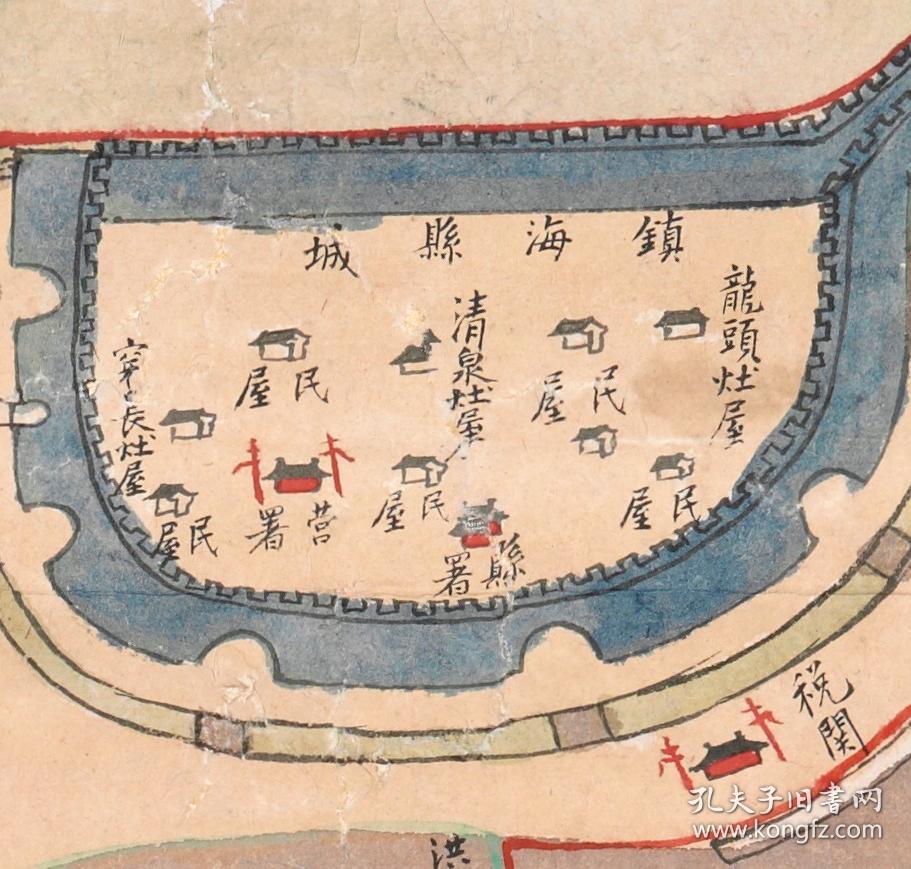 鎮海縣城
龍頭灶屋
清泉灶屋
穿長灶屋
民屋
民屋
民屋
民屋
民屋
營署
縣署
稅関
洪
孔夫子旧书网
www.kongfz.com